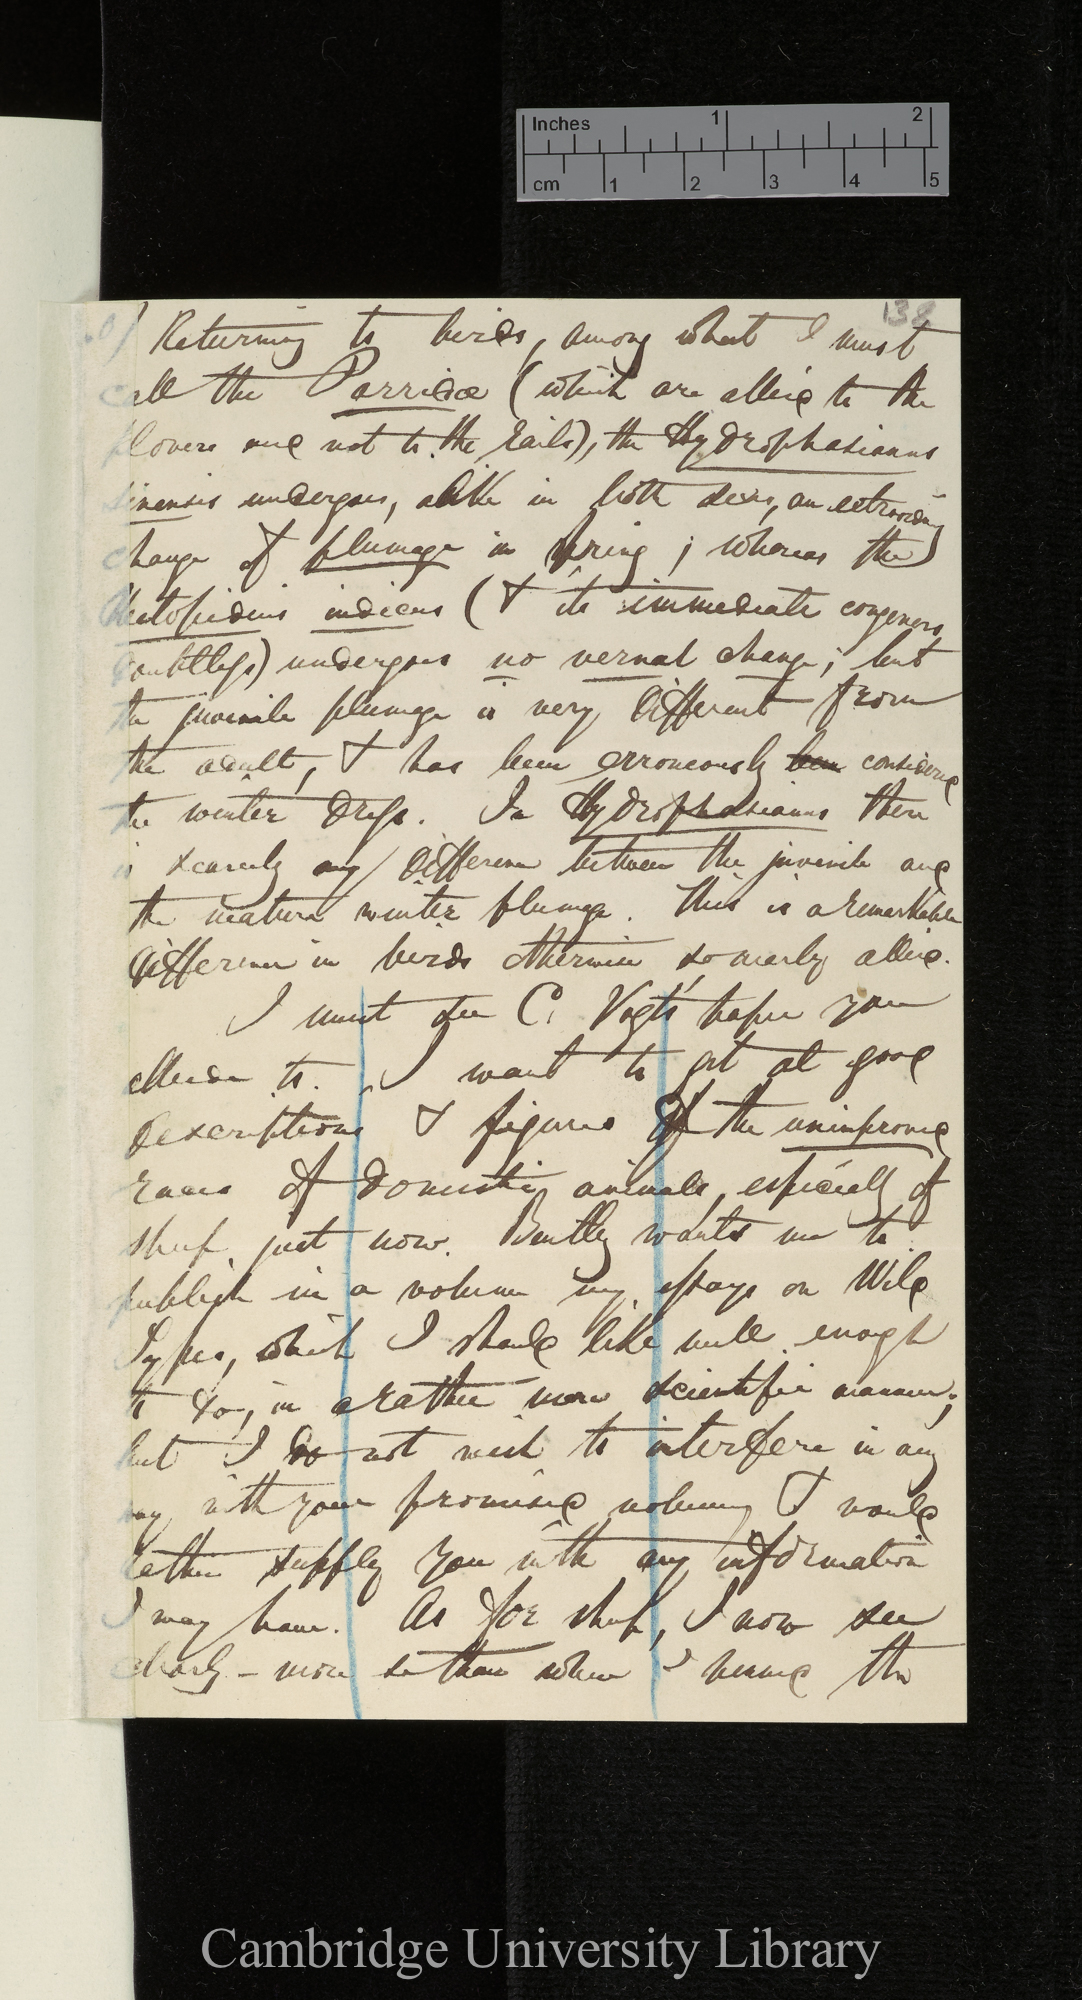 Inches 1 2
cm 1 2 3 4 5
138
Returning to birds, among what I must
call the Parridæ (which are allied to the
plovers and not to the rails), the Hydrophasianus
sinensis undergoes, alike in both sexes, an extraordy
change of plumage in spring; whereas the
Metopidius indicus (& its immediate congeners,
doubtless) undergoes no vernal change; but
the juvenile plumage is very different from
the adult, & has been erroneously been considered
the winter dress. In Hydrophasianus there
is scarcely any difference between the juvenile and
the mature winter plumage. This is a remarkable
difference in birds otherwise so nearly allied.
I must see C. Vogt's paper you
allude to. I want to get at good
descriptions & figures of the unimproved
races of domestic animals, especially of
sheep just now. Bentley wants me to
publish in a volume my essays on Wild
Types, which I should like well enough
to do, in a rather more scientific manner;
but I do not wish to interfere in any
way with your promised volume, & would
rather supply you with any information
I may have. As for sheep, I now see
clearly – more so than when I penned the
Cambridge University Library